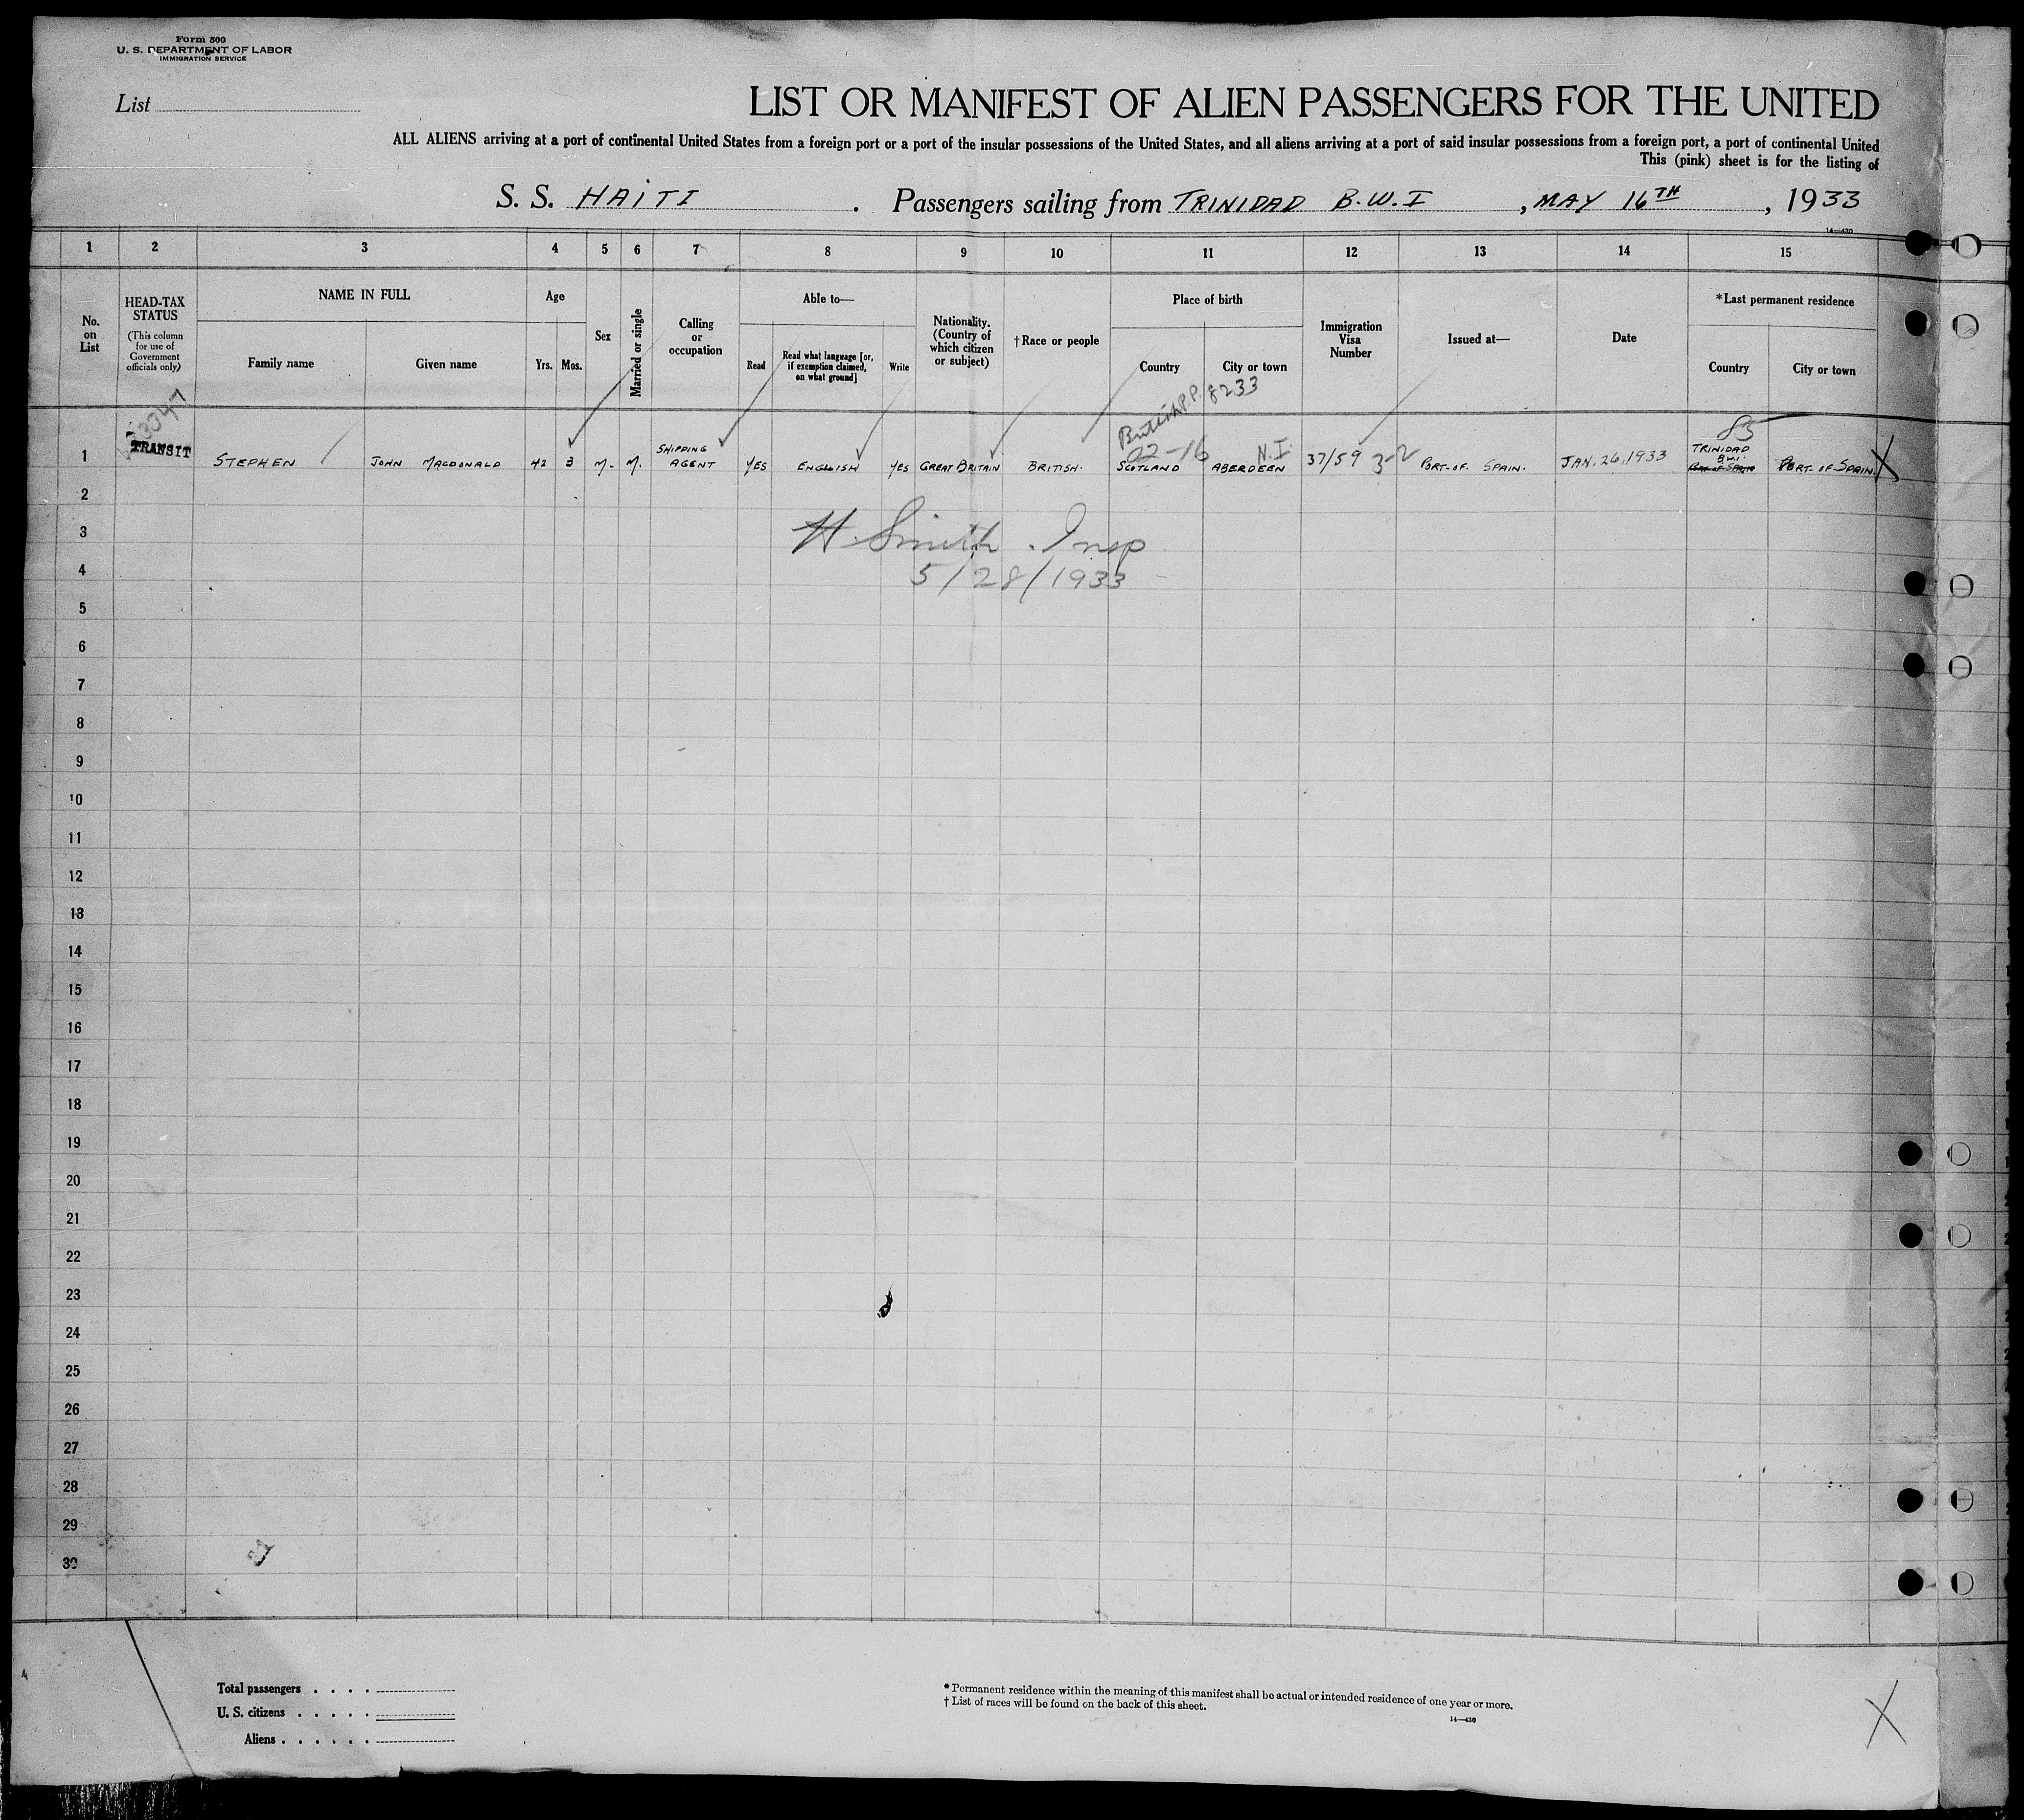 Form 500
U. S. DEPARTMENT OF LABOR
IMMIGRATION SERVICE
List
LIST OR MANIFEST OF ALIEN PASSENGERS FOR THE UNITED
ALL ALIENS arriving at a port of continental United States from a foreign port or a port of the insular possessions of the United States, and all aliens arriving at a port of said insular possessions from a foreign port, a port of continental United
This (pink) sheet is for the listing of
S. S. HAITI . Passengers sailing from TRINIDAD B.W.I , MAY 16TH , 1933
14—430
1 2 3 4 5 6 7 8 9 10 11 12 13 14 15
No. on List
HEAD-TAX STATUS
(This column for use of Government officials only)
NAME IN FULL
Family name
Given name
Age
Yrs. Mos.
Sex
Married or single
Calling or occupation
Able to—
Read
Read what language [or, if exemption claimed, on what ground]
Write
Nationality. (Country of which citizen or subject)
†Race or people
Place of birth
Country
City or town
Immigration Visa Number
Issued at—
Date
*Last permanent residence
Country
City or town
British P.P. 8233
85
02-16 N.I.
1 TRANSIT STEPHEN JOHN MACDONALD 42 3 M. M. SHIPPING AGENT YES ENGLISH YES GREAT BRITAIN BRITISH. SCOTLAND ABERDEEN 37/59 3-2 PORT-OF. SPAIN. JAN. 26, 1933 TRINIDAD B.W.I. PORT-OF-SPAIN. X
2
3
H. Smith . Insp
4
5/28/1933
5
6
7
8
9
10
11
12
13
14
15
16
17
18
19
20
21
22
23
24
25
26
27
28
29
30
Total passengers . . . .
U. S. citizens . . . . .
Aliens . . . . . .
* Permanent residence within the meaning of this manifest shall be actual or intended residence of one year or more.
† List of races will be found on the back of this sheet.
14—430
X